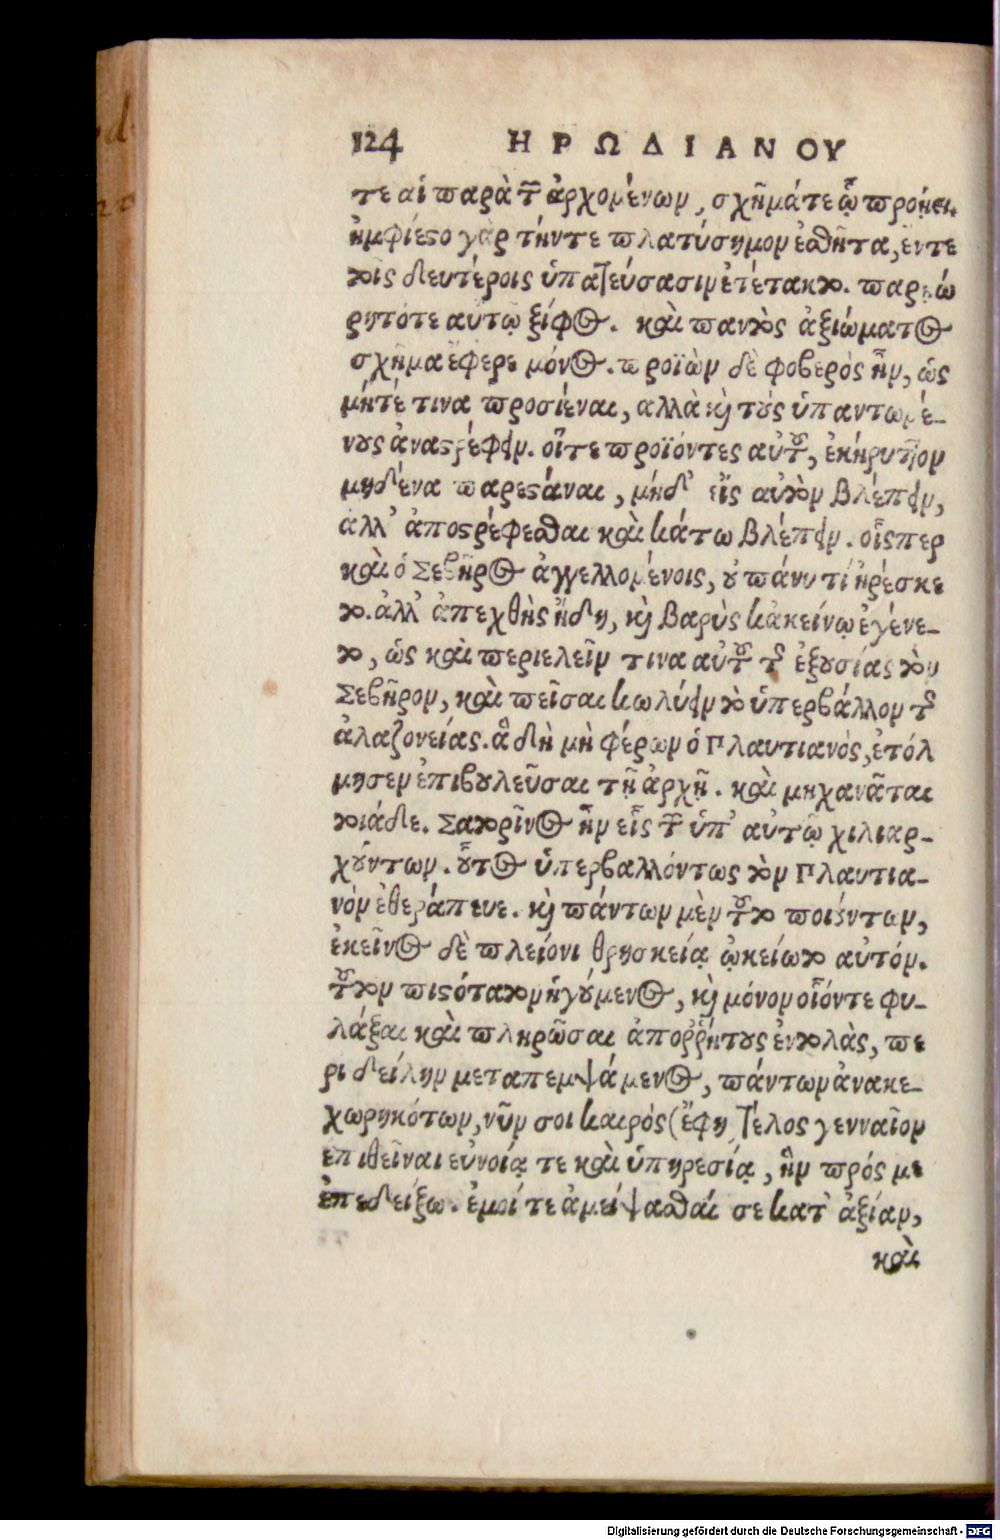 124 ΗΡΩΔΙΑΝΟΥ
τε αἱ παρὰ τῶν ἀρχομένων, σχῆμά τε ᾧ προῄει.
ἠμφίεστο γὰρ τήν τε πλατύσημον ἐσθῆτα, ἔν τε
τοῖς δευτέροις ὑπατεύσασιν ἐτέτακτο. παρῃώ
ρητό τε αὐτῷ ξίφος. καὶ παντὸς ἀξιώματος
σχῆμα ἔφερε μόνος. προϊὼν δὲ φοβερὸς ἦν, ὡς
μήτέ τινα προσιέναι, αλλὰ καὶ τοὺς ὑπαντωμέ-
νους ἀναστρέφειν. οἵ τε προϊόντες αὐτοῦ, ἐκήρυττον
μηδένα παρεστάναι, μήδ' εἰς αὐτὸν βλέπειν,
ἀλλ' ἀποστρέφεσθαι καὶ κάτω βλέπειν. οἷσπερ
καὶ ὁ Σεβῆρος ἀγγελλομένοις, οὐ πάνυ τί ἠρέσκε
το. ἀλλ' ἀπεχθὴς ἤδη, καὶ βαρὺς κἀκείνῳ ἐγένε-
το, ὡς καὶ περιελεῖν τινα αὐτοῦ τῆς ἐξουσίας τὸν
Σεβῆρον, καὶ πεῖσαι κωλύειν τὸ ὑπερβάλλον τῆς
ἀλαζονείας. ἃ δὴ μὴ φέρων ὁ Πλαυτιανὸς, ἐτόλ
μησεν ἐπιβουλεῦσαι τῇ ἀρχῇ. καὶ μηχανᾶται
τοιάδε. Σατορῖνος ἦν εἷς τῶν ὑπ' αὐτῷ χιλιαρ-
χούντων. οὗτος ὑπερβαλλόντως τὸν Πλαυτια-
νὸν ἐθεράπευε. καὶ πάντων μὲν τοῦτο ποιούντων,
ἐκεῖνος δὲ πλείονι θρησκείᾳ ᾠκείωτο αὐτόν.
τοῦτον πιστότατον ἡγούμενος, καὶ μόνον οἷόν τε φυ-
λάξαι καὶ πληρῶσαι ἀπορῤῥήτους ἐντολὰς, πε
ρι δείλην μεταπεμψάμενος, πάντων ἀνακε-
χωρηκότων, νῦν σοι καιρὸς (ἔφη) τέλος γενναῖον
ἐπιθεῖναι εὐνοίᾳ τε καὶ ὑπηρεσίᾳ, ἣν πρός με
ἐπεδείξω. ἐμοί τε ἀμείψασθαί σε κατ' ἀξίαν,
καὶ
Digitalisierung gefördert durch die Deutsche Forschungsgemeinschaft - DFG